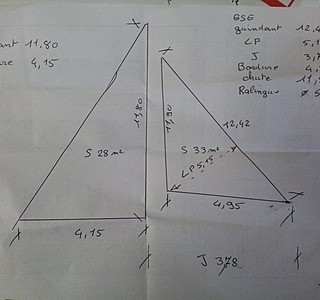 GSE
guindant 12,4
LP 5,1
J 3,7
Bordure 4,
chute 11,
Ralingue ø 5
ant 11,80
ure 4,15
11,80
S 28 m²
4,15
11,90
12,42
S 33 m²
LP 5,15
4,95
J 3,78